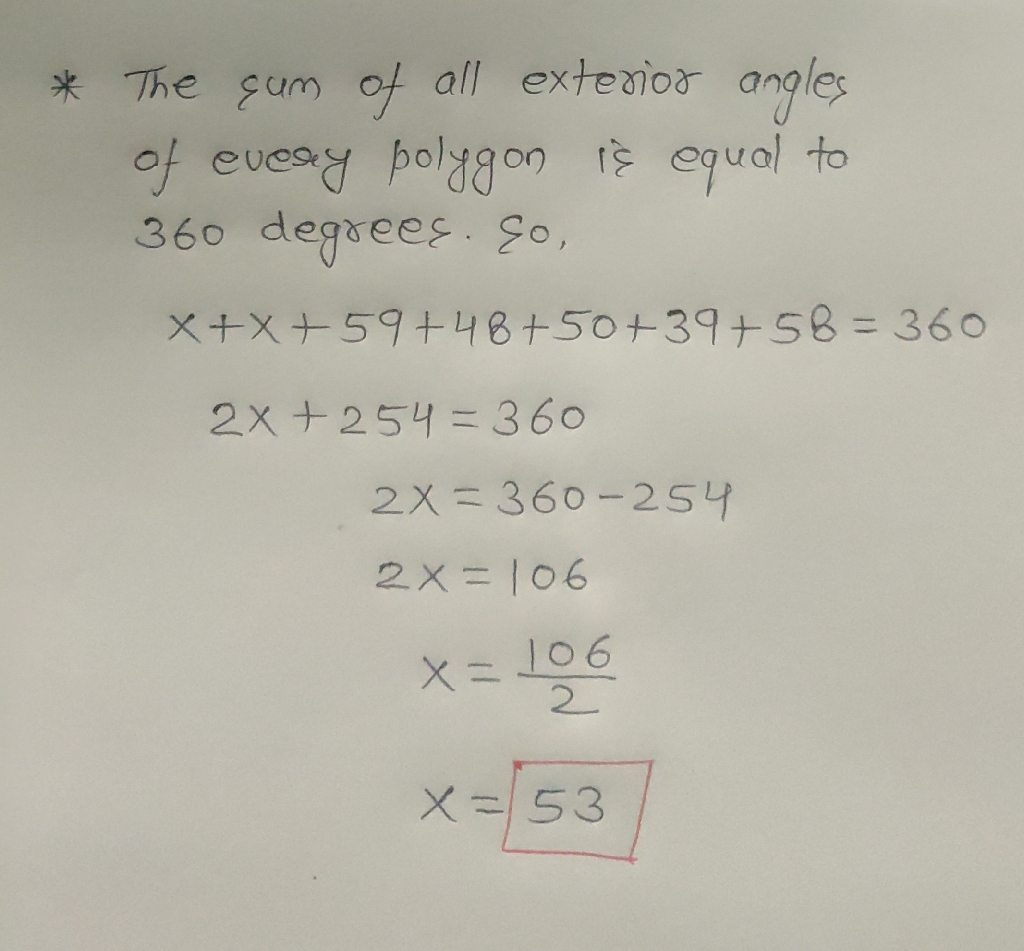 * The sum of all exterior angles
of every polygon is equal to
360 degrees. So,
x+x+59+48+50+39+58=360
2x+254=360
2x=360-254
2x=106
x=106/2
x=53